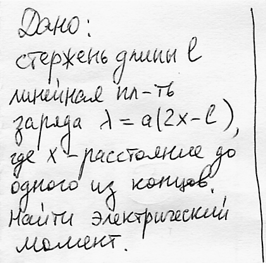 Дано:
стержень длины l
линейная пл-ть
заряда λ = a(2x-l),
где x - расстояние до
одного из концов.
Найти электрический
момент.